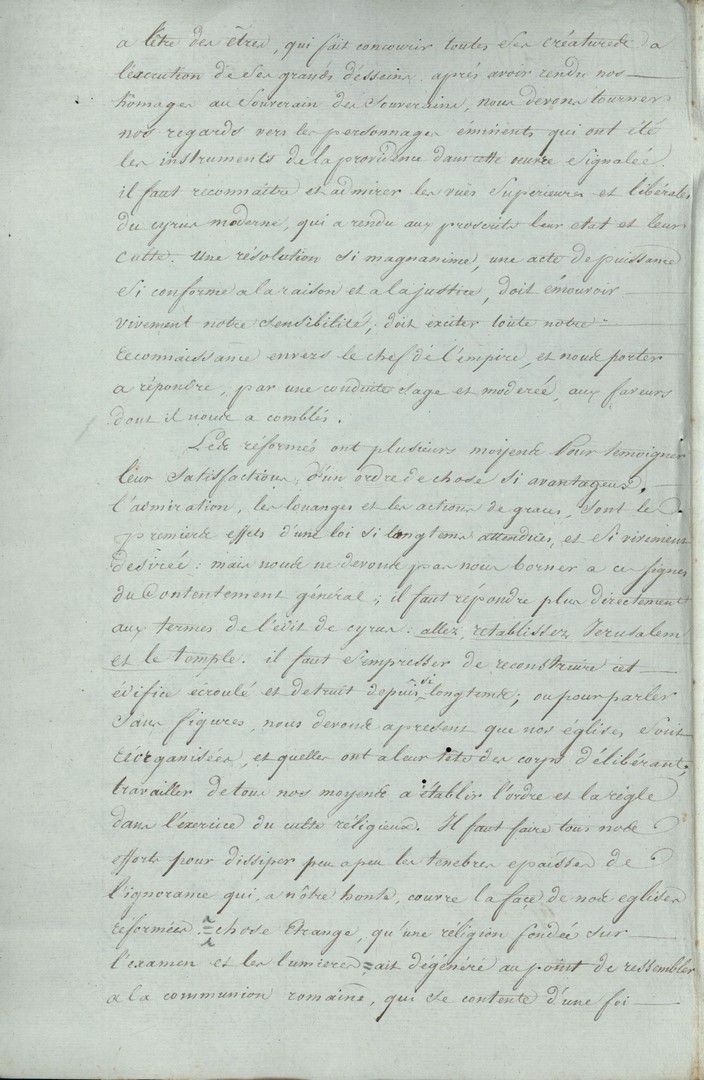 a l'être des êtres, qui fait concourir toutes ses créatures à
l'exécution de ses grands desseins. aprés avoir rendu nos
homages au Souverain des Souverains, nous devons tourner
nos regards vers les personnages éminents qui ont été
les instruments de la providence dans cette œuvre signalée.
il faut reconnaître et admirer les vues Superieures et libérales
du cyrus moderne, qui a rendu aux proscrits leur etat et leur
culte. Une résolution si magnanime, une acte de puissance
Si conforme a la raison et a la justice, doit émouvoir
vivement notre sensibilité, doit éxciter toute notre
reconnaissance envers le chef de l'empire, et nous porter
a répondre, par une conduite sage et moderée, aux faveurs
dont il nous a comblés.
Les réformés ont plusieurs moyens Pour temoigner
leur Satisfaction, d'un ordre de chose si avantageux.
l'admiration, les louanges et les actions de graces, sont les
premiers effets d'une loi si longtems attendues, et si vivement
desirée: mais nous ne devons pas nous borner a ces signes
du Contentement général; il faut répondre plus directement
aux termes de l'édit de cyrus: allez, retablissez Jerusalem
et le temple. il faut s'empresser de reconstruire cet
édifice écroulé et detruit depuis si longtems; ou pour parler
Sans figures, nous devons apresent que nos églises sont
réorganisées, et quelles ont a leur tête des corps délibérant,
travailler de tous nos moyens a établir l'ordre et la règle
dans l'exercice du culte réligieux. Il faut faire tous nos
efforts pour dissiper peu a peu les tenebres epaisses de
l'ignorance qui, a nôtre honte, couvre la façe de nos eglises
réformées. = chose Etrange, qu'une réligion fondée sur
l'examen et les lumieres = ait dégénéré au point de ressembler
a la communion romaine, qui se contente d'une foi